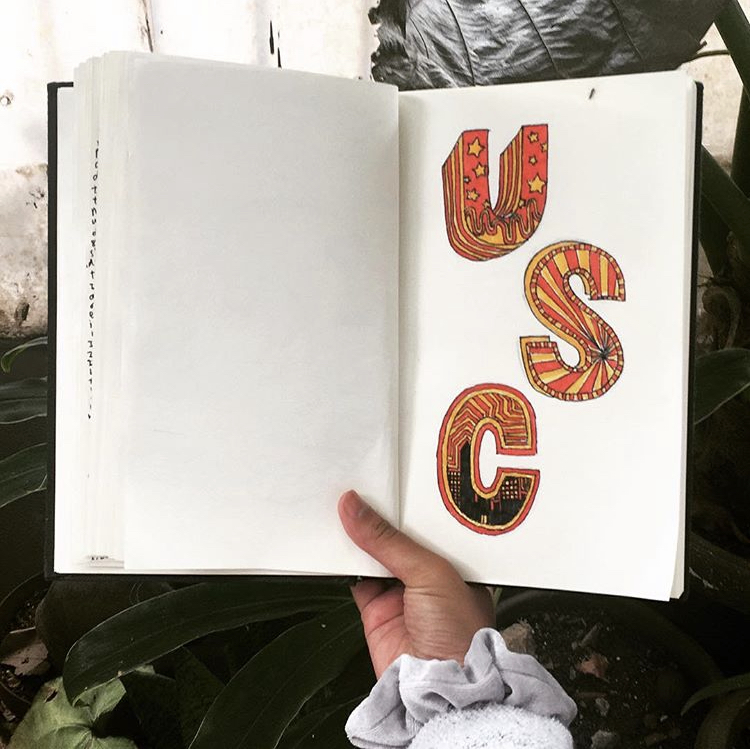 U
S
C